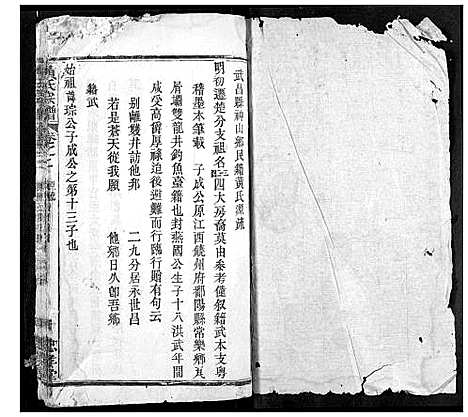 武昌縣神山鄉民籍黃氏源疏
明初遷楚分支祖名三四大房裔莫由叅考僅叙籍武本支粤
稽墨本筆載　子成公原江西饒州府鄱陽縣常樂鄉瓦
屑壩雙龍井釣魚臺籍也封燕國公生子十八洪武年間
咸受高爵厚祿迫後避難而行臨行有句云
別離雙井訪他邦　二九分居永世昌
若是蒼天從我願　他鄉日久卽吾鄉
籍武
始祖貴琮公子成公之第十三子也
黃氏宗譜　卷之